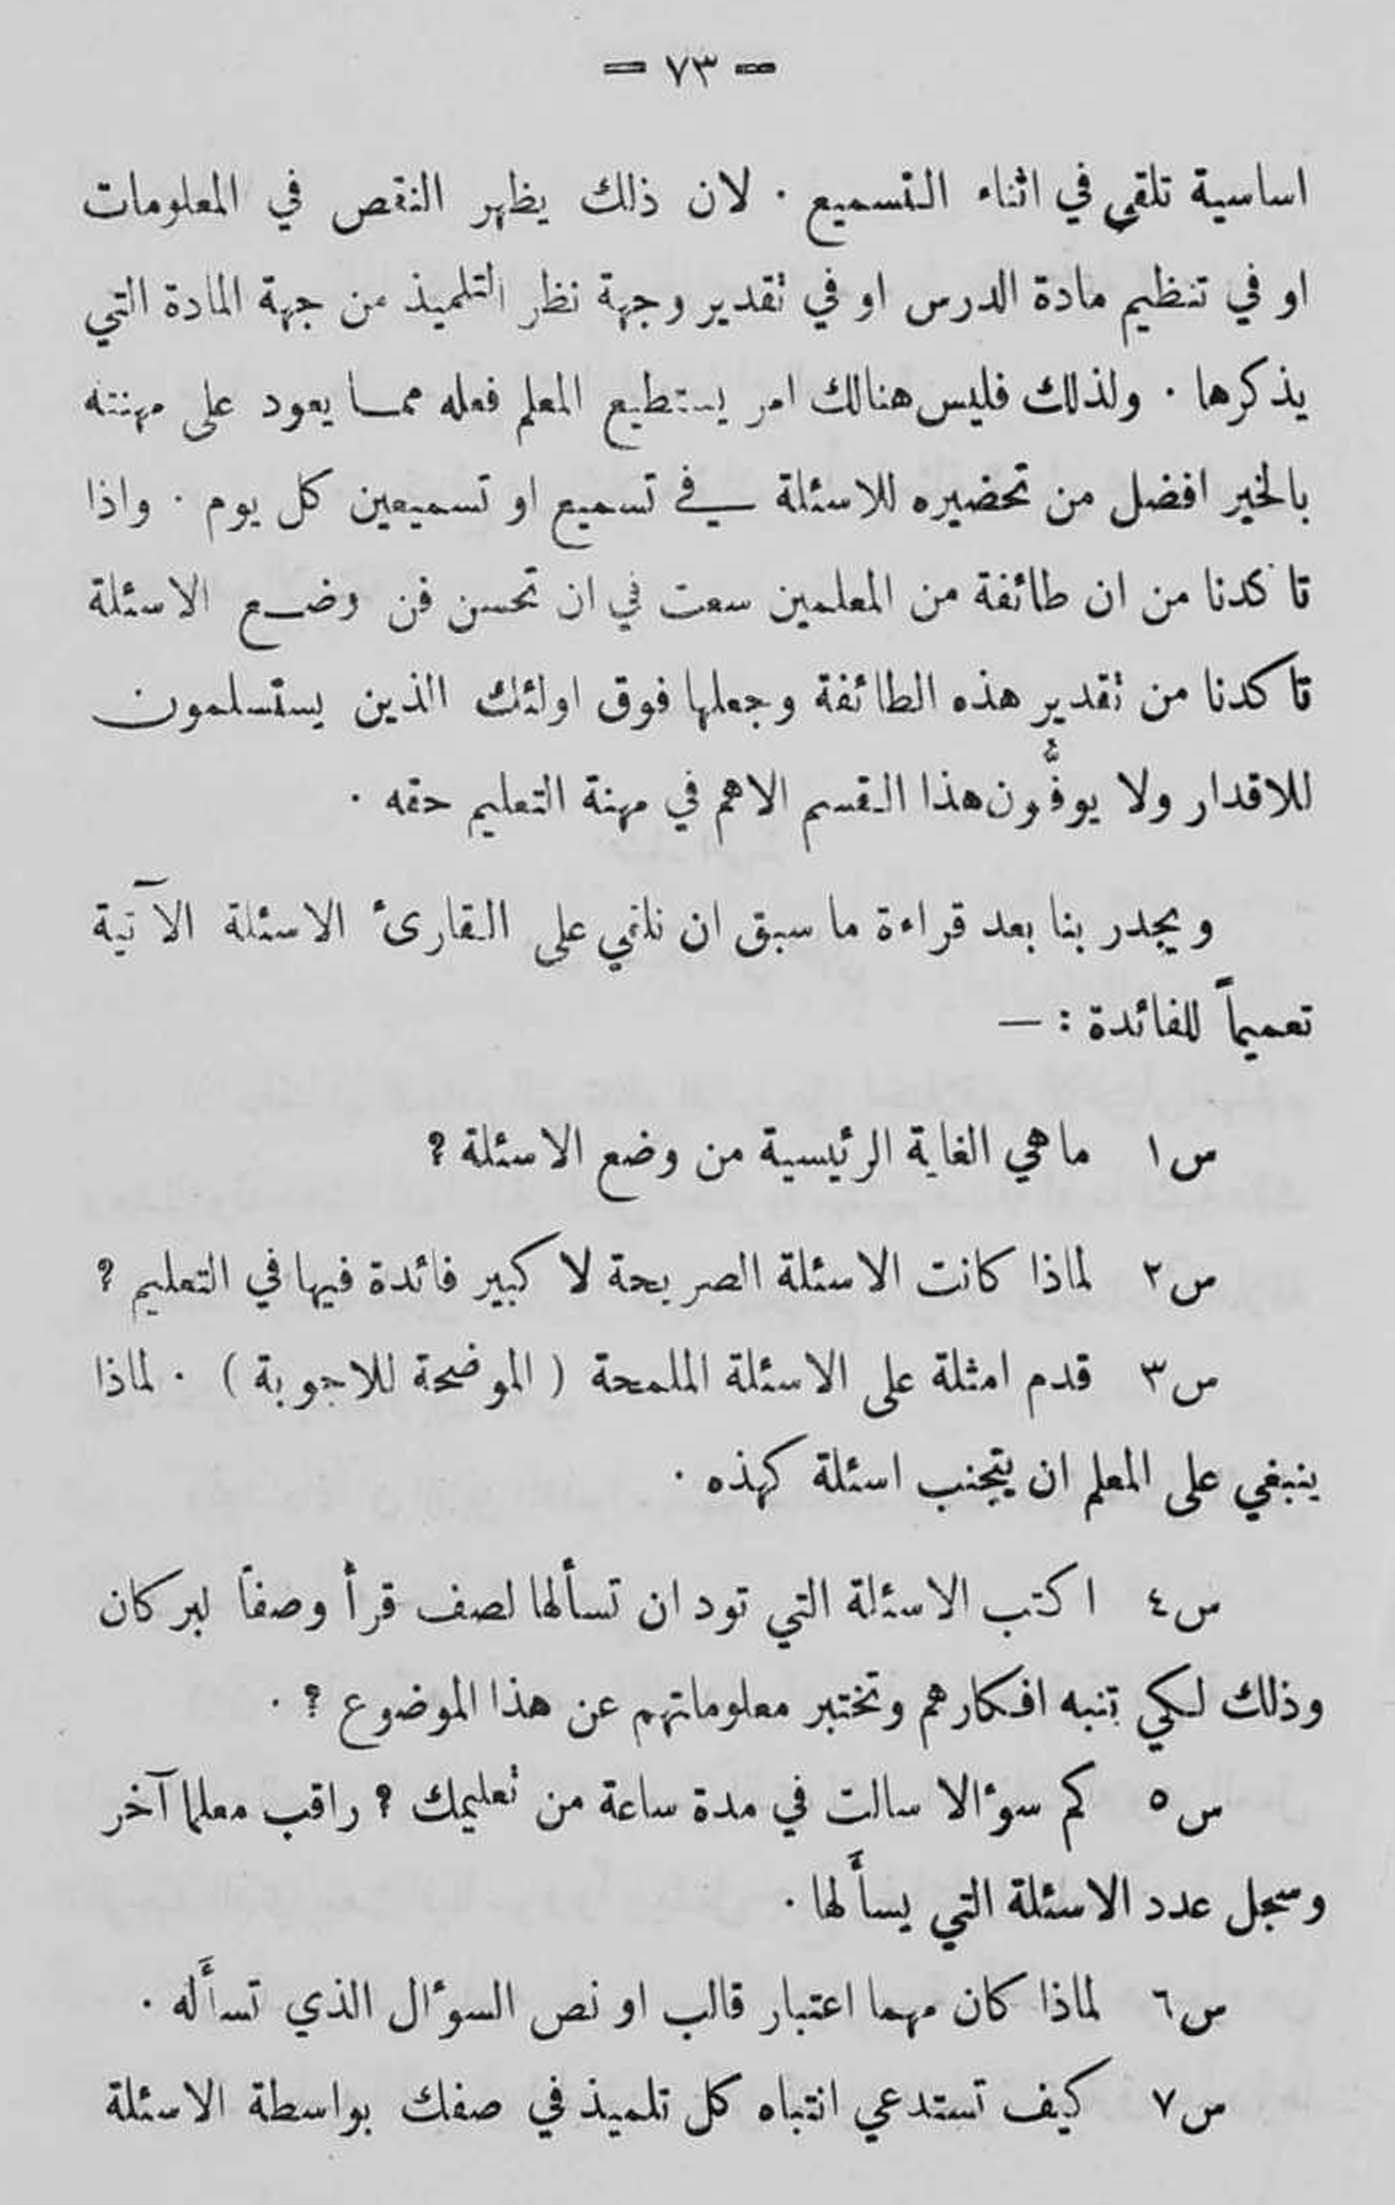 = ٧٣ =
اساسية تلقى في اثناء التسميع · لان ذلك يظهر النقص في المعلومات
او في تنظيم مادة الدرس او في تقدير وجهة نظر التلميذ من جهة المادة التي
يذكرها · ولذلك فليس هنالك امر يستطيع المعلم فعله مما يعود على مهنته
بالخير افضل من تحضيره للاسئلة في تسميع او تسميعين كل يوم · واذا
تاكدنا من ان طائفة من المعلمين سعت في ان تحسن فن وضع الاسئلة
تاكدنا من تقدير هذه الطائفة وجعلها فوق اولئك الذين يستسلمون
للاقدار ولا يوفُّون هذا القسم الاهم في مهنة التعليم حقه ·
ويجدر بنا بعد قراءة ما سبق ان نلقي على القارئ الاسئلة الآتية
تعميماً للفائدة : —
س١ ما هي الغاية الرئيسية من وضع الاسئلة ؟
س٢ لماذا كانت الاسئلة الصريحة لا كبير فائدة فيها في التعليم ؟
س٣ قدم امثلة على الاسئلة الملمحة ( الموضحة للاجوبة ) · لماذا
ينبغي على المعلم ان يتجنب اسئلة كهذه ·
س٤ اكتب الاسئلة التي تود ان تسألها لصف قرأ وصفاً لبركان
وذلك لكي تنبه افكارهم وتختبر معلوماتهم عن هذا الموضوع ؟ ·
س٥ كم سوءالا سالت في مدة ساعة من تعليمك ؟ راقب معلما آخر
وسجل عدد الاسئلة التي يسأَلها ·
س٦ لماذا كان مهما اعتبار قالب او نص السوءال الذي تسأَله ·
س٧ كيف تستدعي انتباه كل تلميذ في صفك بواسطة الاسئلة